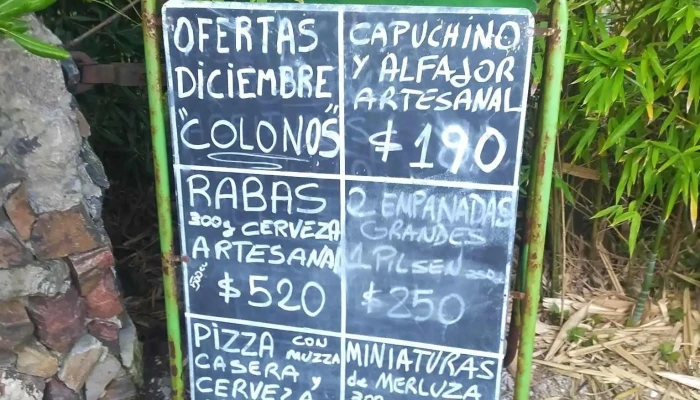 OFERTAS
DICIEMBRE
"COLONOS"
CAPUCHINO
Y ALFAJOR
ARTESANAL
$190
RABAS
300g CERVEZA
ARTESANAL
500cc
$520
2 EMPANADAS
GRANDES
1 PILSEN
$250
PIZZA CON
MUZZA
CASERA y
CERVEZA
MINIATURAS
de MERLUZA
300